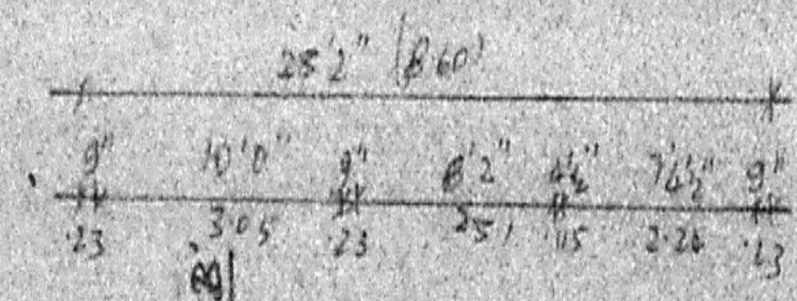 28'2" (8.60)
9" 10'0" 9" 8'2" 4½" 7'4½" 9"
.23 3.05 .23 2.51 .115 2.26 .23